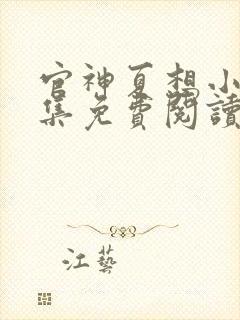 官神夏想小
集免費閱讀
江藝